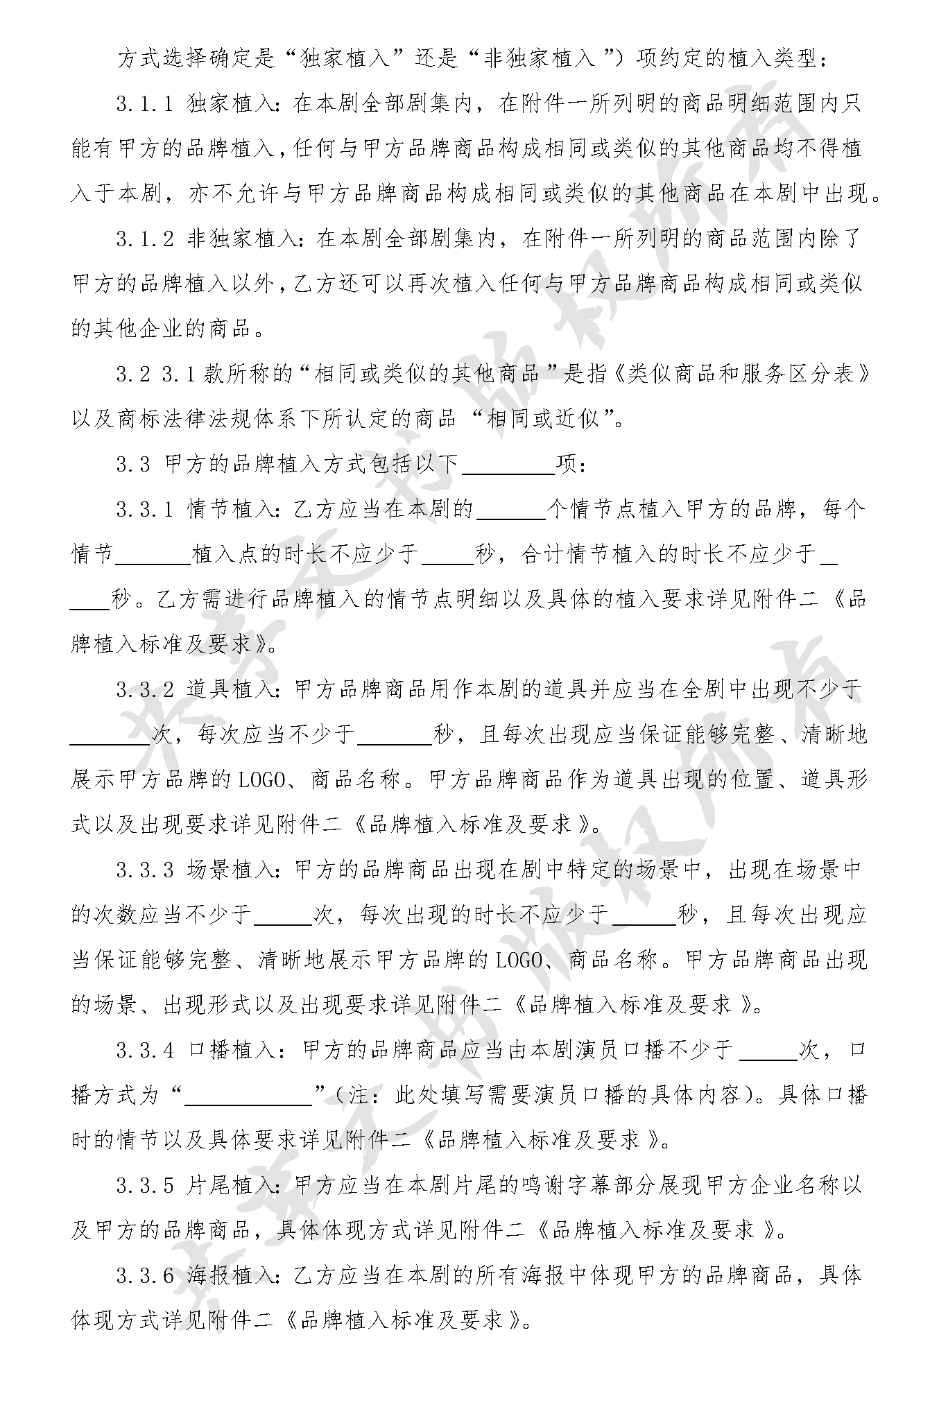 方式选择确定是“独家植入”还是“非独家植入”）项约定的植入类型：
3.1.1 独家植入：在本剧全部剧集内，在附件一所列明的商品明细范围内只
能有甲方的品牌植入，任何与甲方品牌商品构成相同或类似的其他商品均不得植
入于本剧，亦不允许与甲方品牌商品构成相同或类似的其他商品在本剧中出现。
3.1.2 非独家植入：在本剧全部剧集内，在附件一所列明的商品范围内除了
甲方的品牌植入以外，乙方还可以再次植入任何与甲方品牌商品构成相同或类似
的其他企业的商品。
3.2 3.1款所称的“相同或类似的其他商品”是指《类似商品和服务区分表》
以及商标法律法规体系下所认定的商品 “相同或近似”。
3.3 甲方的品牌植入方式包括以下________项：
3.3.1 情节植入：乙方应当在本剧的______个情节点植入甲方的品牌，每个
情节______植入点的时长不应少于____秒，合计情节植入的时长不应少于__
___秒。乙方需进行品牌植入的情节点明细以及具体的植入要求详见附件二《品
牌植入标准及要求》。
3.3.2 道具植入：甲方品牌商品用作本剧的道具并应当在全剧中出现不少于
_______次，每次应当不少于______秒，且每次出现应当保证能够完整、清晰地
展示甲方品牌的LOGO、商品名称。甲方品牌商品作为道具出现的位置、道具形
式以及出现要求详见附件二《品牌植入标准及要求》。
3.3.3 场景植入：甲方的品牌商品出现在剧中特定的场景中，出现在场景中
的次数应当不少于_____次，每次出现的时长不应少于_____秒，且每次出现应
当保证能够完整、清晰地展示甲方品牌的LOGO、商品名称。甲方品牌商品出现
的场景、出现形式以及出现要求详见附件二《品牌植入标准及要求》。
3.3.4 口播植入：甲方的品牌商品应当由本剧演员口播不少于_____次，口
播方式为“___________”（注：此处填写需要演员口播的具体内容）。具体口播
时的情节以及具体要求详见附件二《品牌植入标准及要求》。
3.3.5 片尾植入：甲方应当在本剧片尾的鸣谢字幕部分展现甲方企业名称以
及甲方的品牌商品，具体体现方式详见附件二《品牌植入标准及要求》。
3.3.6 海报植入：乙方应当在本剧的所有海报中体现甲方的品牌商品，具体
体现方式详见附件二《品牌植入标准及要求》。
共享文书 版权所有
共享文书 版权所有